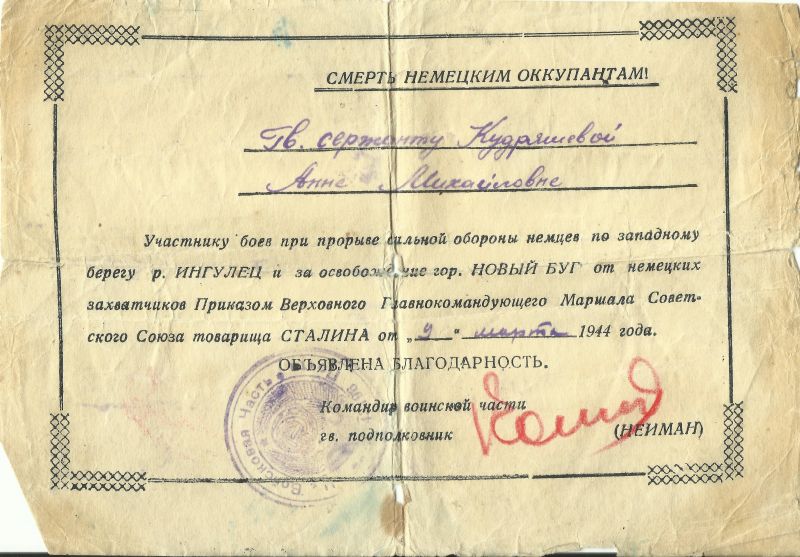 СМЕРТЬ НЕМЕЦКИМ ОККУПАНТАМ!
Гв. сержанту Кудряшевой
Анне Михайловне
Участнику боев при прорыве сильной обороны немцев по западному
берегу р. ИНГУЛЕЦ и за освобождение гор. НОВЫЙ БУГ от немецких
захватчиков Приказом Верховного Главнокомандующего Маршала Совет-
ского Союза товарища СТАЛИНА от „9" марта 1944 года.
ОБЪЯВЛЕНА БЛАГОДАРНОСТЬ.
Командир воинской части
гв. подполковник (НЕЙМАН)
Войсковая Часть